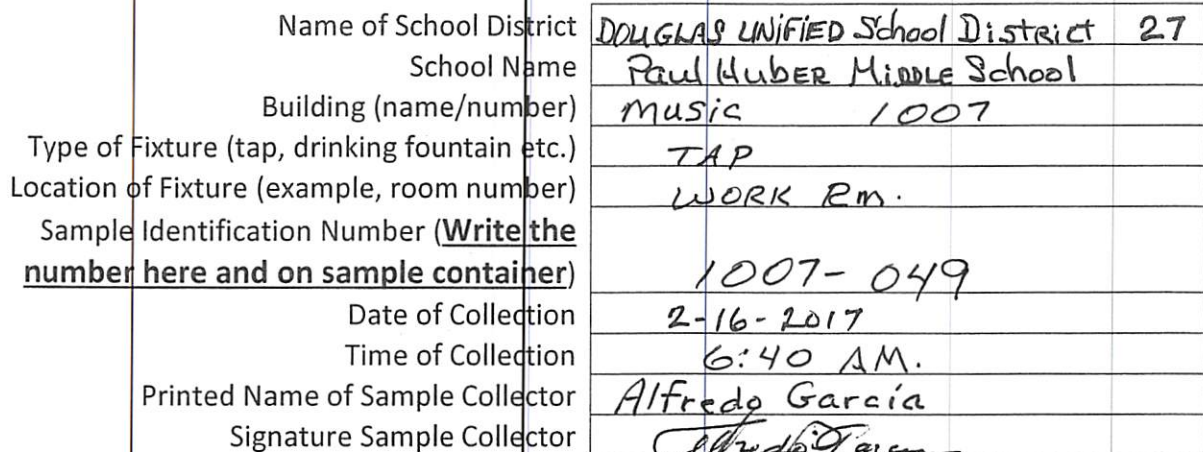 Name of School District DOUGLAS UNIFIED School District 27
School Name Paul Huber Middle School
Building (name/number) Music 1007
Type of Fixture (tap, drinking fountain etc.) TAP
Location of Fixture (example, room number) WORK Rm.
Sample Identification Number (Write the
number here and on sample container) 1007-049
Date of Collection 2-16-2017
Time of Collection 6:40 AM.
Printed Name of Sample Collector Alfredo Garcia
Signature Sample Collector